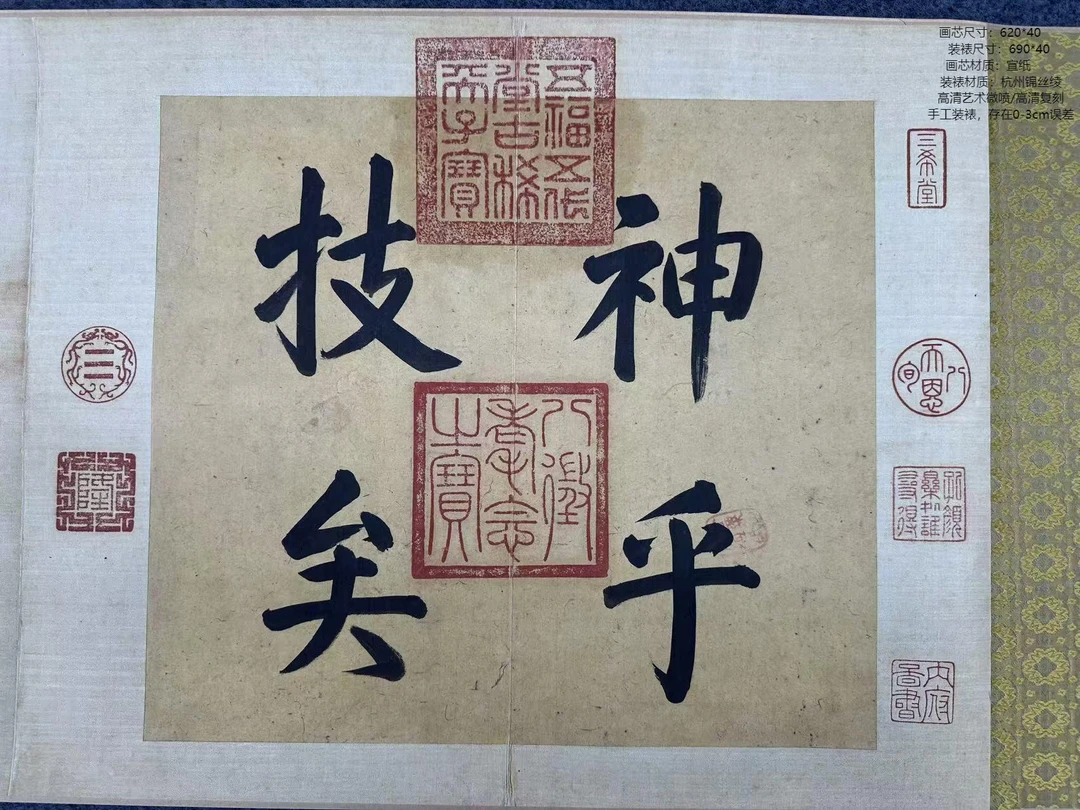 画芯尺寸：620*40
装裱尺寸：690*40
画芯材质：宣纸
装裱材质：杭州锦丝绫
高清艺术微喷/高清复刻
手工装裱，存在0-3cm误差
三希堂
八旬天恩
内府
五福五代
堂古稀
天子寶
八徵
耄念
之寶
神乎
技矣
隆